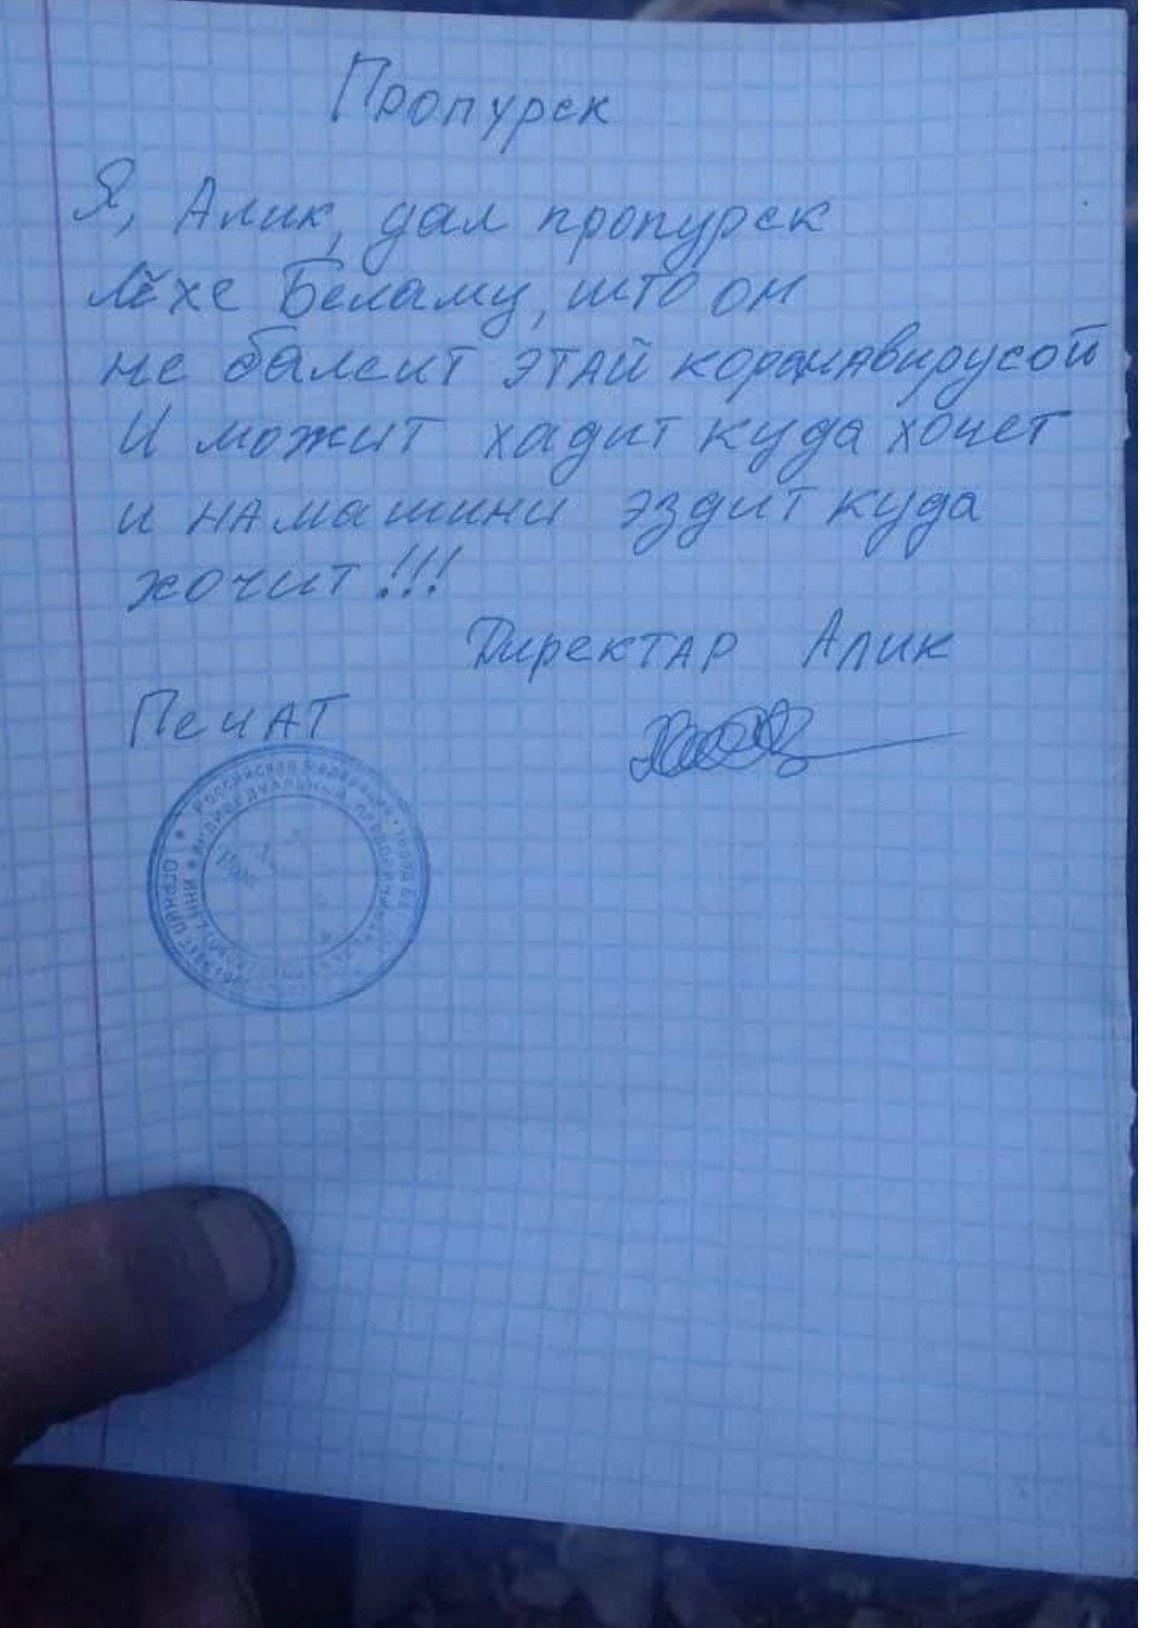 Пропурск
Я, Алик, дал пропурск
Лёхе Беламу, што он
не балеит этай коранавирусой
И можит хадит куда хочет
и на машини эздит куда
хочит!!!
Директар Алик
Печат
Российская Федерация
ИНДИВИДУАЛЬНЫЙ ПРЕДПРИНИМАТЕЛЬ